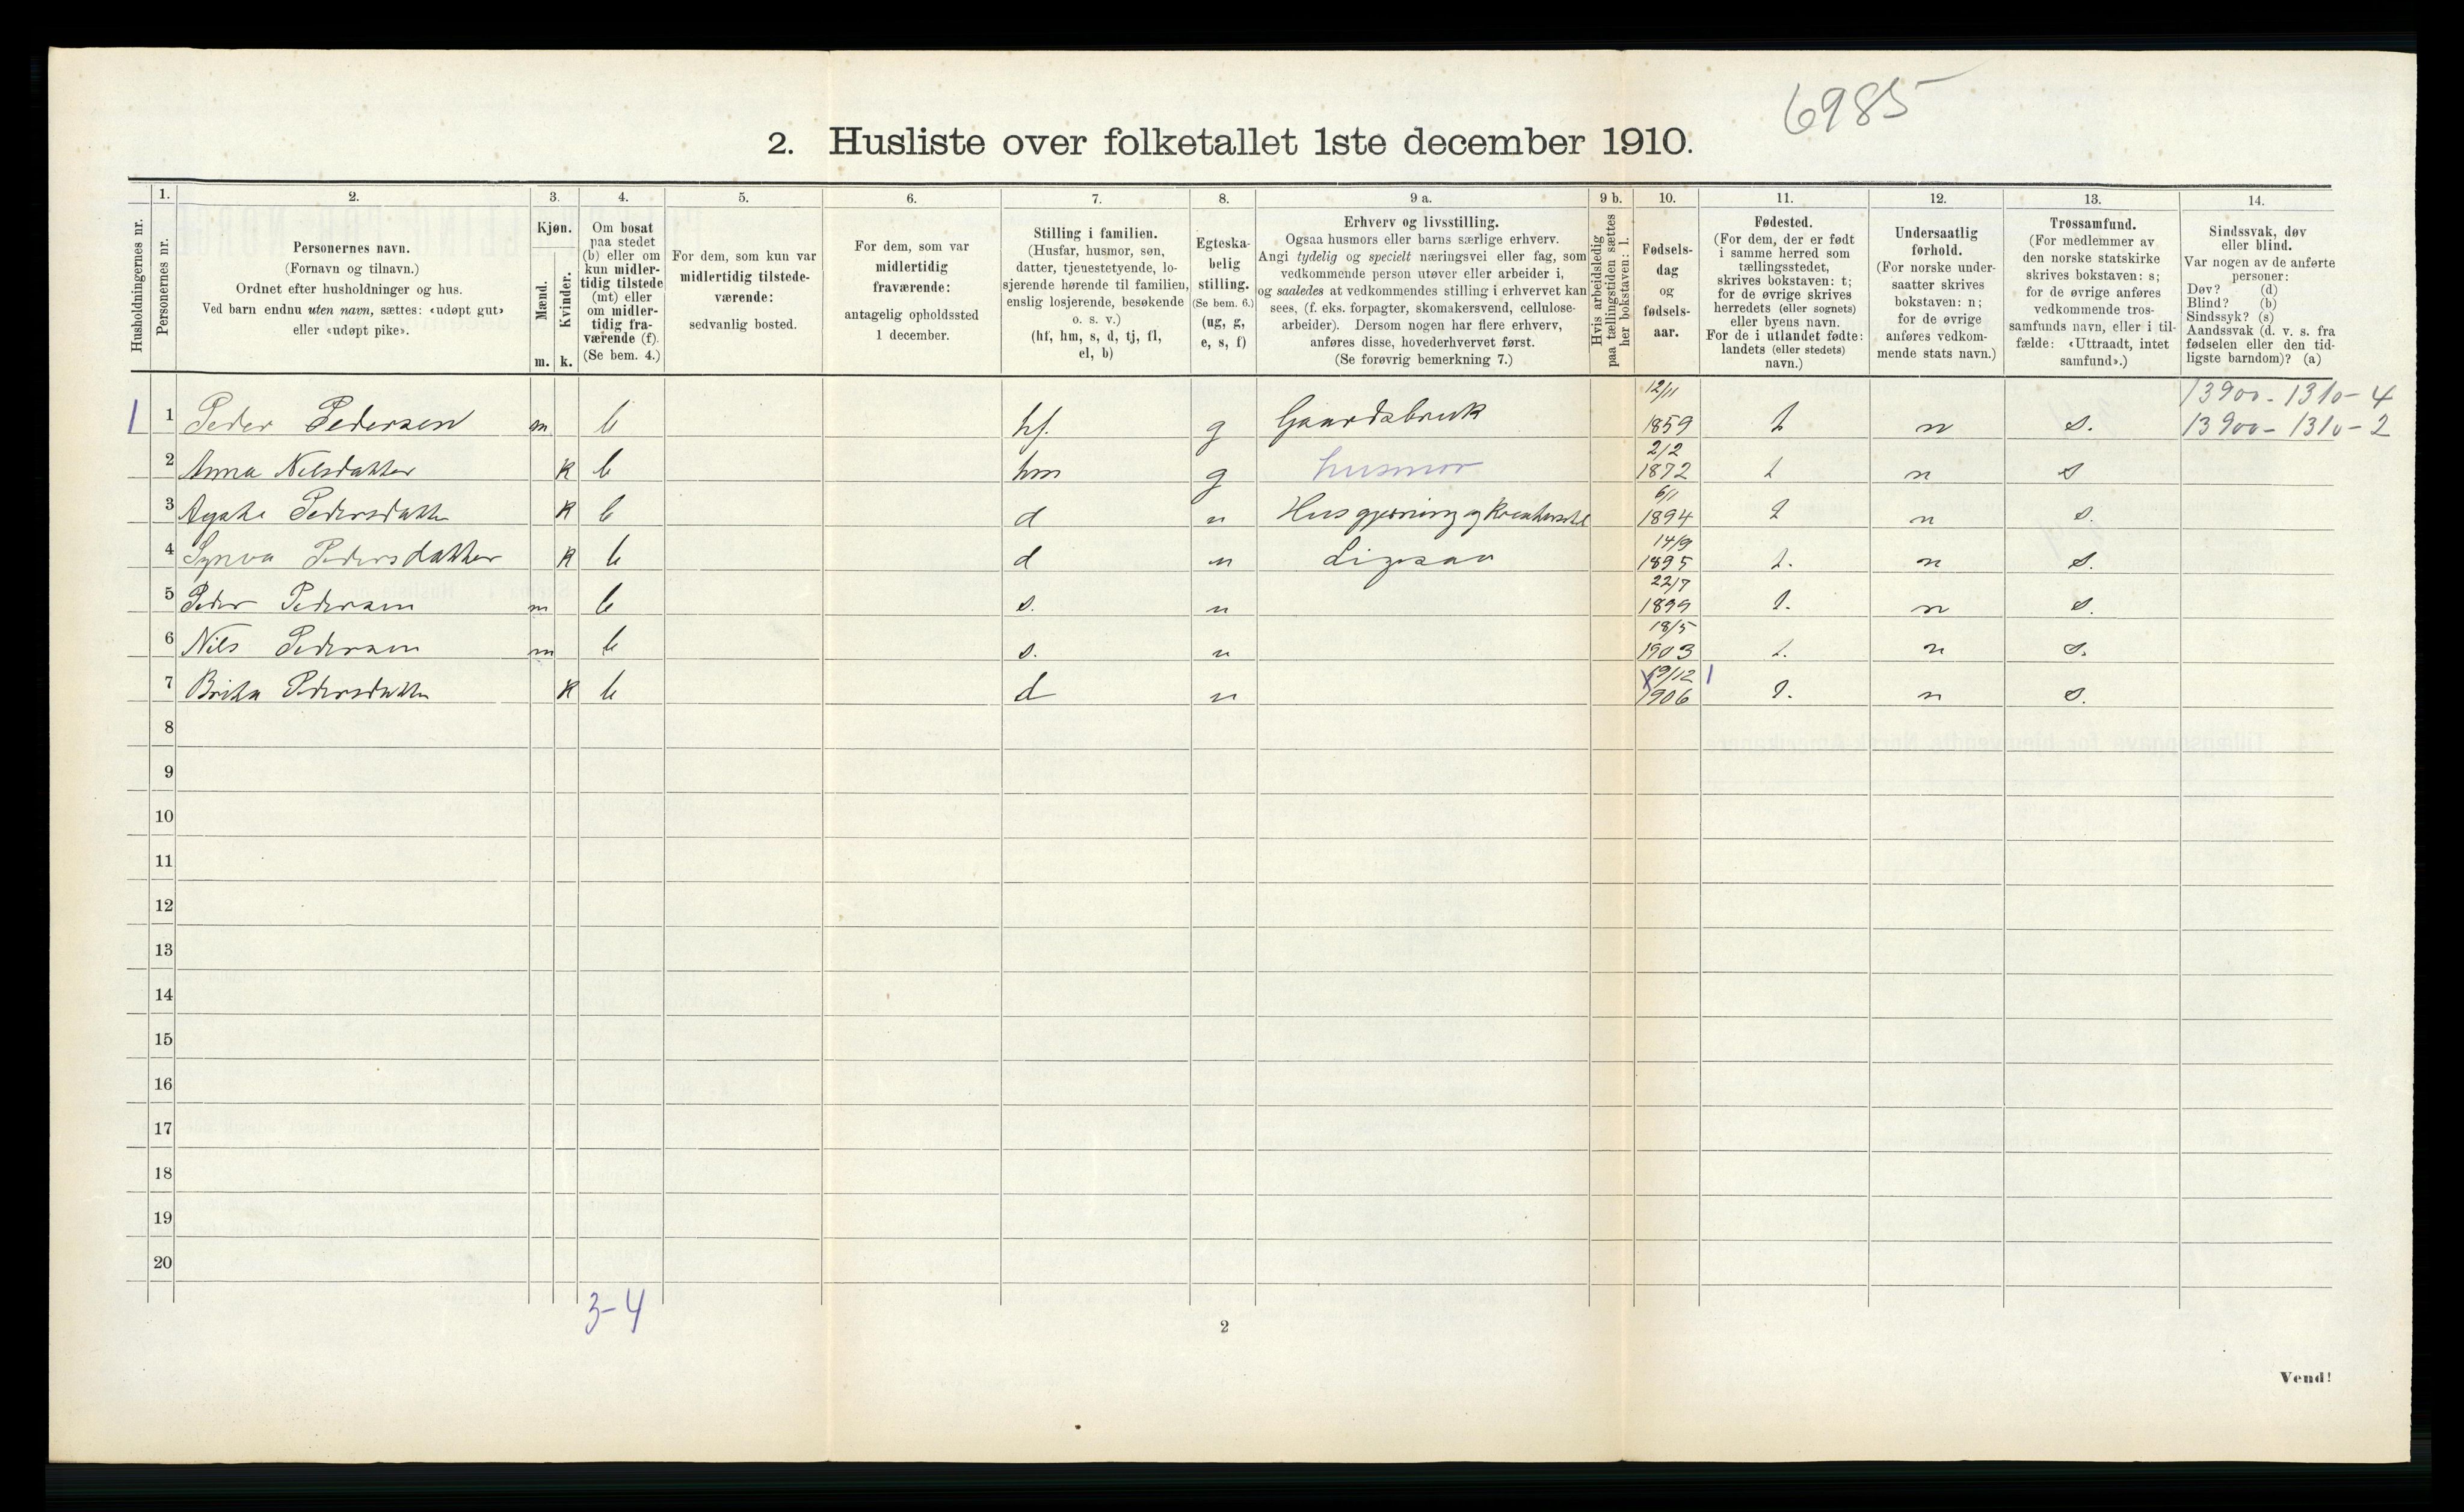 6985
2. Husliste over folketallet 1ste december 1910.
Husholdningernes nr.
1.
Personernes nr.
2.
Personernes navn.
(Fornavn og tilnavn.)
Ordnet efter husholdninger og hus.
Ved barn endnu uten navn, sættes: «udøpt gut»
eller «udøpt pike».
3.
Kjøn.
Mænd.
Kvinder.
m. k.
4.
Om bosat
paa stedet
(b) eller om
kun midler-
tidig tilstede
(mt) eller
om midler-
tidig fra-
værende (f).
(Se bem. 4.)
5.
For dem, som kun var
midlertidig tilstede-
værende:
sedvanlig bosted.
6.
For dem, som var
midlertidig
fraværende:
antagelig opholdssted
1 december.
7.
Stilling i familien.
(Husfar, husmor, søn,
datter, tjenestetyende, lo-
sjerende hørende til familien,
enslig losjerende, besøkende
o. s. v.)
(hf, hm, s, d, tj, fl,
el, b)
8.
Egteska-
belig
stilling.
(Se bem. 6.)
(ug, g,
e, s, f)
9 a.
Erhverv og livsstilling.
Ogsaa husmors eller barns særlige erhverv.
Angi tydelig og specielt næringsvei eller fag, som
vedkommende person utøver eller arbeider i,
og saaledes at vedkommendes stilling i erhvervet kan
sees, (f. eks. forpagter, skomakersvend, cellulose-
arbeider). Dersom nogen har flere erhverv,
anføres disse, hovederhvervet først.
(Se forøvrig bemerkning 7.)
9 b.
Hvis arbeidsledig
paa tællingstiden sættes
her bokstaven: l.
10.
Fødsels-
dag
og
fødsels-
aar.
11.
Fødested.
(For dem, der er født
i samme herred som
tællingsstedet,
skrives bokstaven: t;
for de øvrige skrives
herredets (eller sognets)
eller byens navn.
For de i utlandet fødte:
landets (eller stedets)
navn.)
12.
Undersaatlig
forhold.
(For norske under-
saatter skrives
bokstaven: n;
for de øvrige
anføres vedkom-
mende stats navn.)
13.
Trossamfund.
(For medlemmer av
den norske statskirke
skrives bokstaven: s;
for de øvrige anføres
vedkommende tros-
samfunds navn, eller i til-
fælde: «Uttraadt, intet
samfund».)
14.
Sindssvak, døv
eller blind.
Var nogen av de anførte
personer:
Døv? (d)
Blind? (b)
Sindssyk? (s)
Aandssvak (d. v. s. fra
fødselen eller den tid-
ligste barndom)? (a)
13900-1310-4
1 1 Peder Pedersen m b hf. g Gaardsbruk 12/11 1859 t n s. 13900-1310-2
2 Anna Nilsdatter k b hm g husmor 2/2 1872 t n s
3 Agathe Pedersdatter k b d u Husgjerning og 6/1 1894 t n s.
4 Synva Pedersdatter k b d u Ligesaa 14/9 1895 t. n s.
5 Peder Pedersen m b s. u 22/7 1899 t. n s.
6 Nils Pedersen m b s. u 18/5 1903 t. n s.
7 Brita Pedersdatter k b d u 19/12 1906 t. n s.
8
9
10
11
12
13
14
15
16
17
18
19
20
3-4
2
Vend!